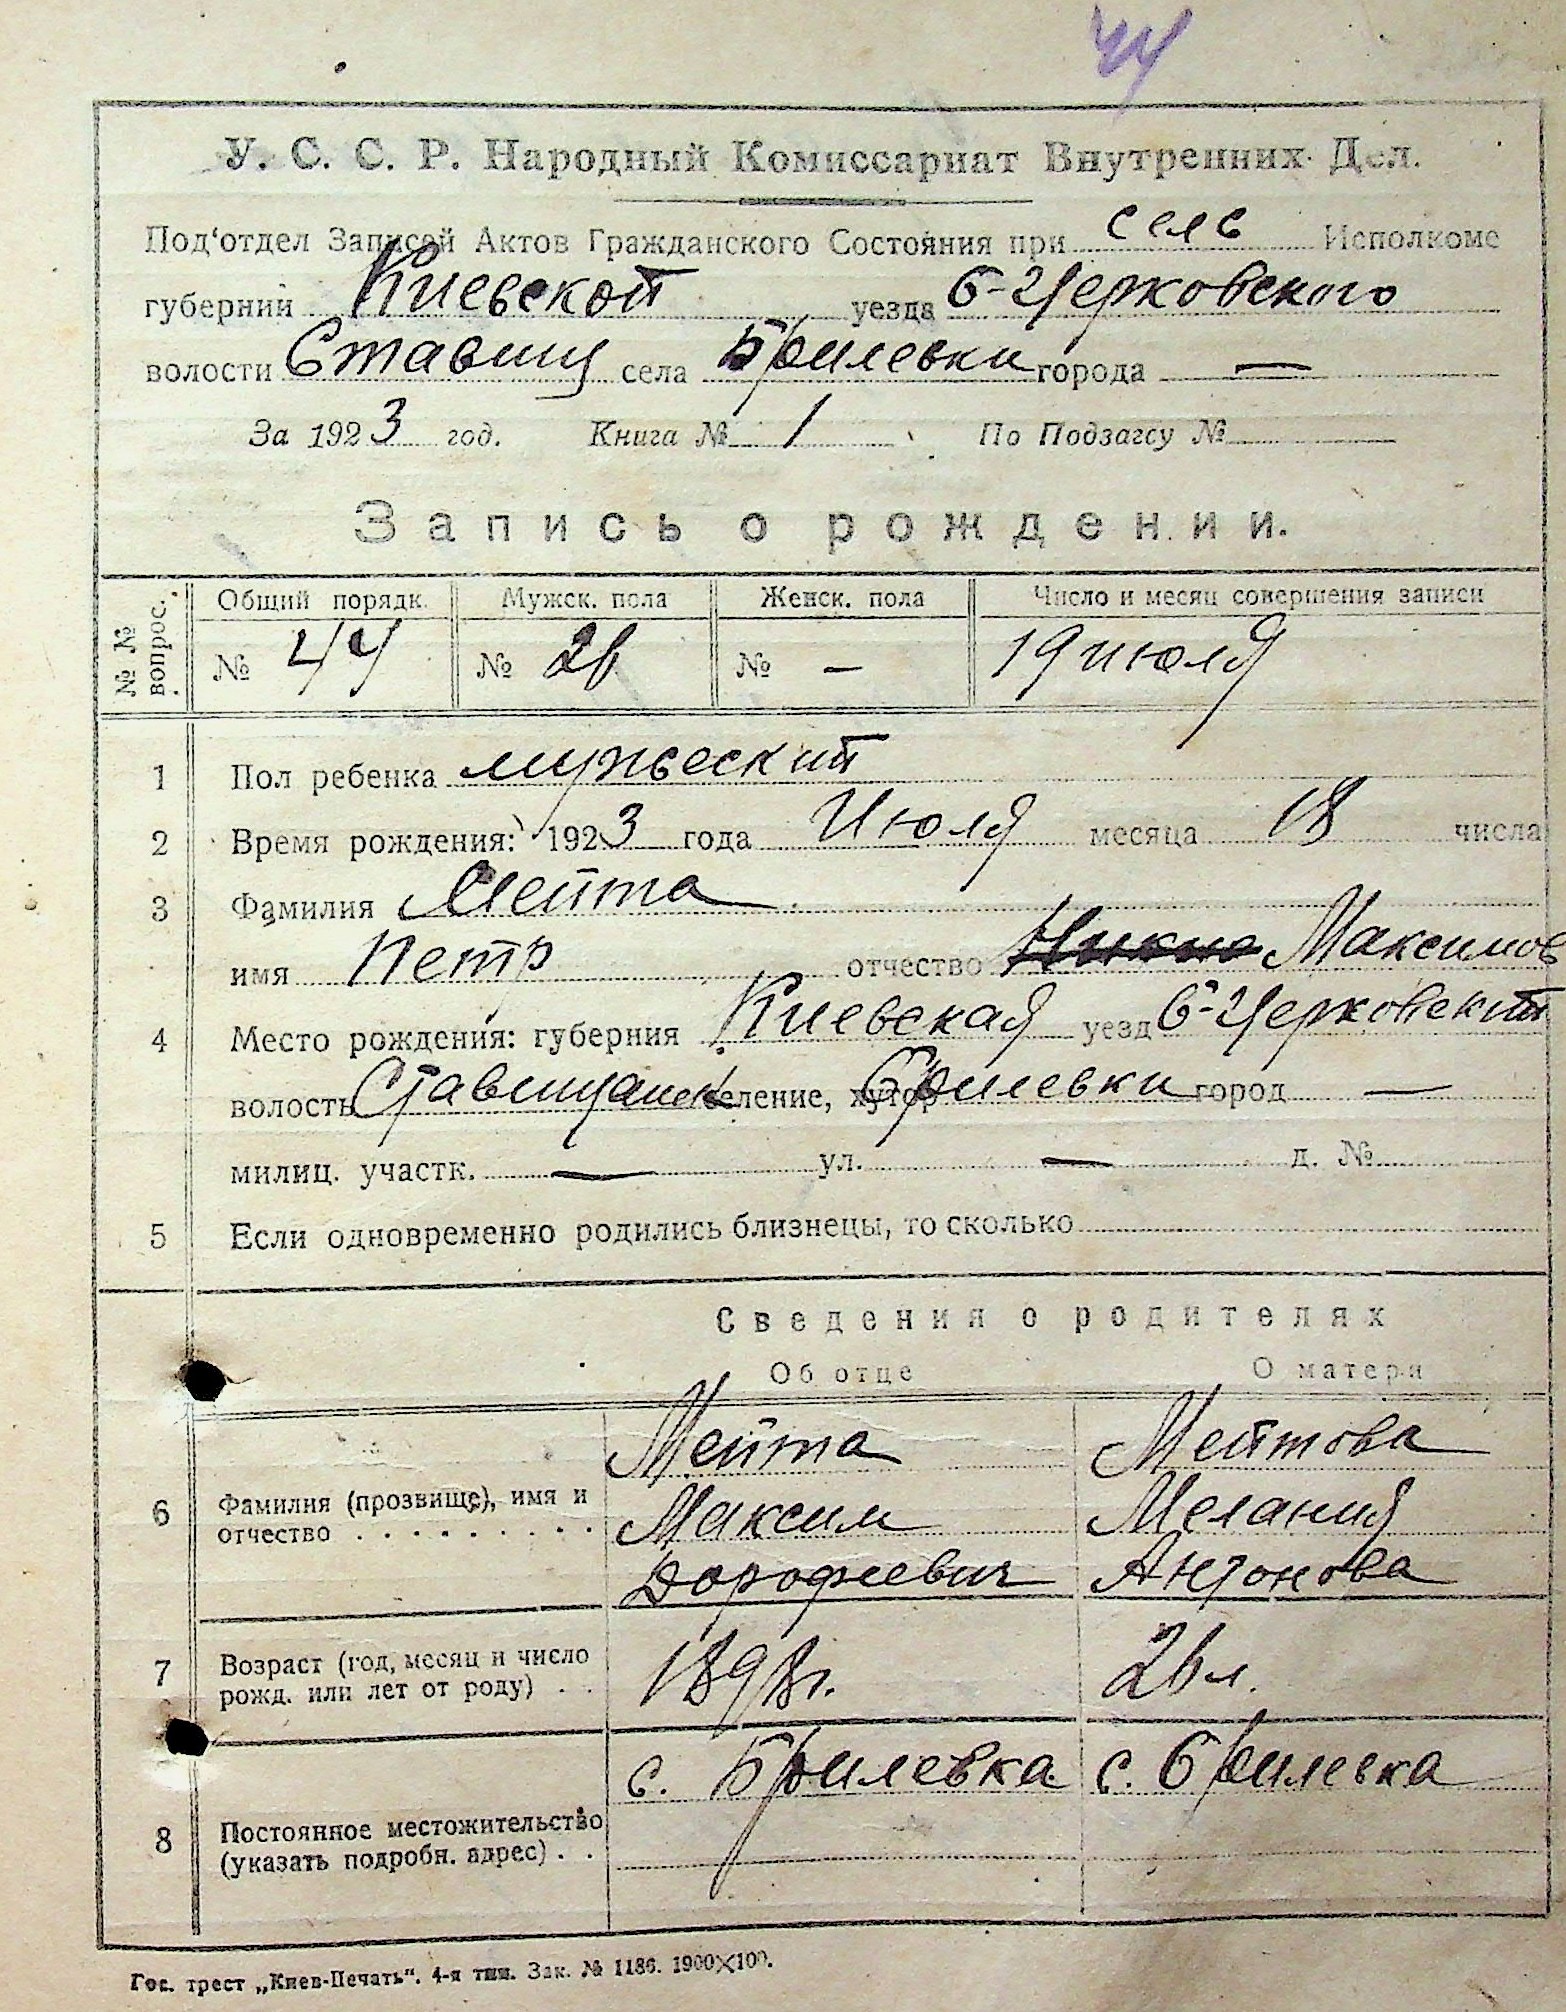 44
У. С. С. Р. Народный Комиссариат Внутренних Дел.
Под‘отдел Записей Актов Гражданского Состояния при сель Исполкоме
губернии Киевской уезда Б-Церковского
волости Ставищ села Брилевки города —
За 1923 год. Книга № 1 По Подзагсу №
Запись о рождении.
№ № вопрос. Общий порядк. Мужск. пола Женск. пола Число и месяц совершения записи
№ 44 № 26 № — 19 июля
1 Пол ребенка мужеский
2 Время рождения: 1923 года Июля месяца 18 числа
3 Фамилия Мейта
имя Петр отчество Максимов
4 Место рождения: губерния Киевская уезд Б-Церковский
волость Ставищанск селение, хутор Брилевки город —
милиц. участк. — ул. — д. №
5 Если одновременно родились близнецы, то сколько
Сведения о родителях
Об отце О матери
Мейта Мейтова
6 Фамилия (прозвище), имя и отчество . . . . . . . . . Максим Мелания
Дорофеевич Антонова
7 Возраст (год, месяц и число рожд. или лет от роду) . . 1898г. 26 л.
с. Брилевка с. Брилевка
8 Постоянное местожительство (указать подробн. адрес) . .
Гос. трест „Киев-Печать“. 4-я тип. Зак. № 1186. 1900×100.